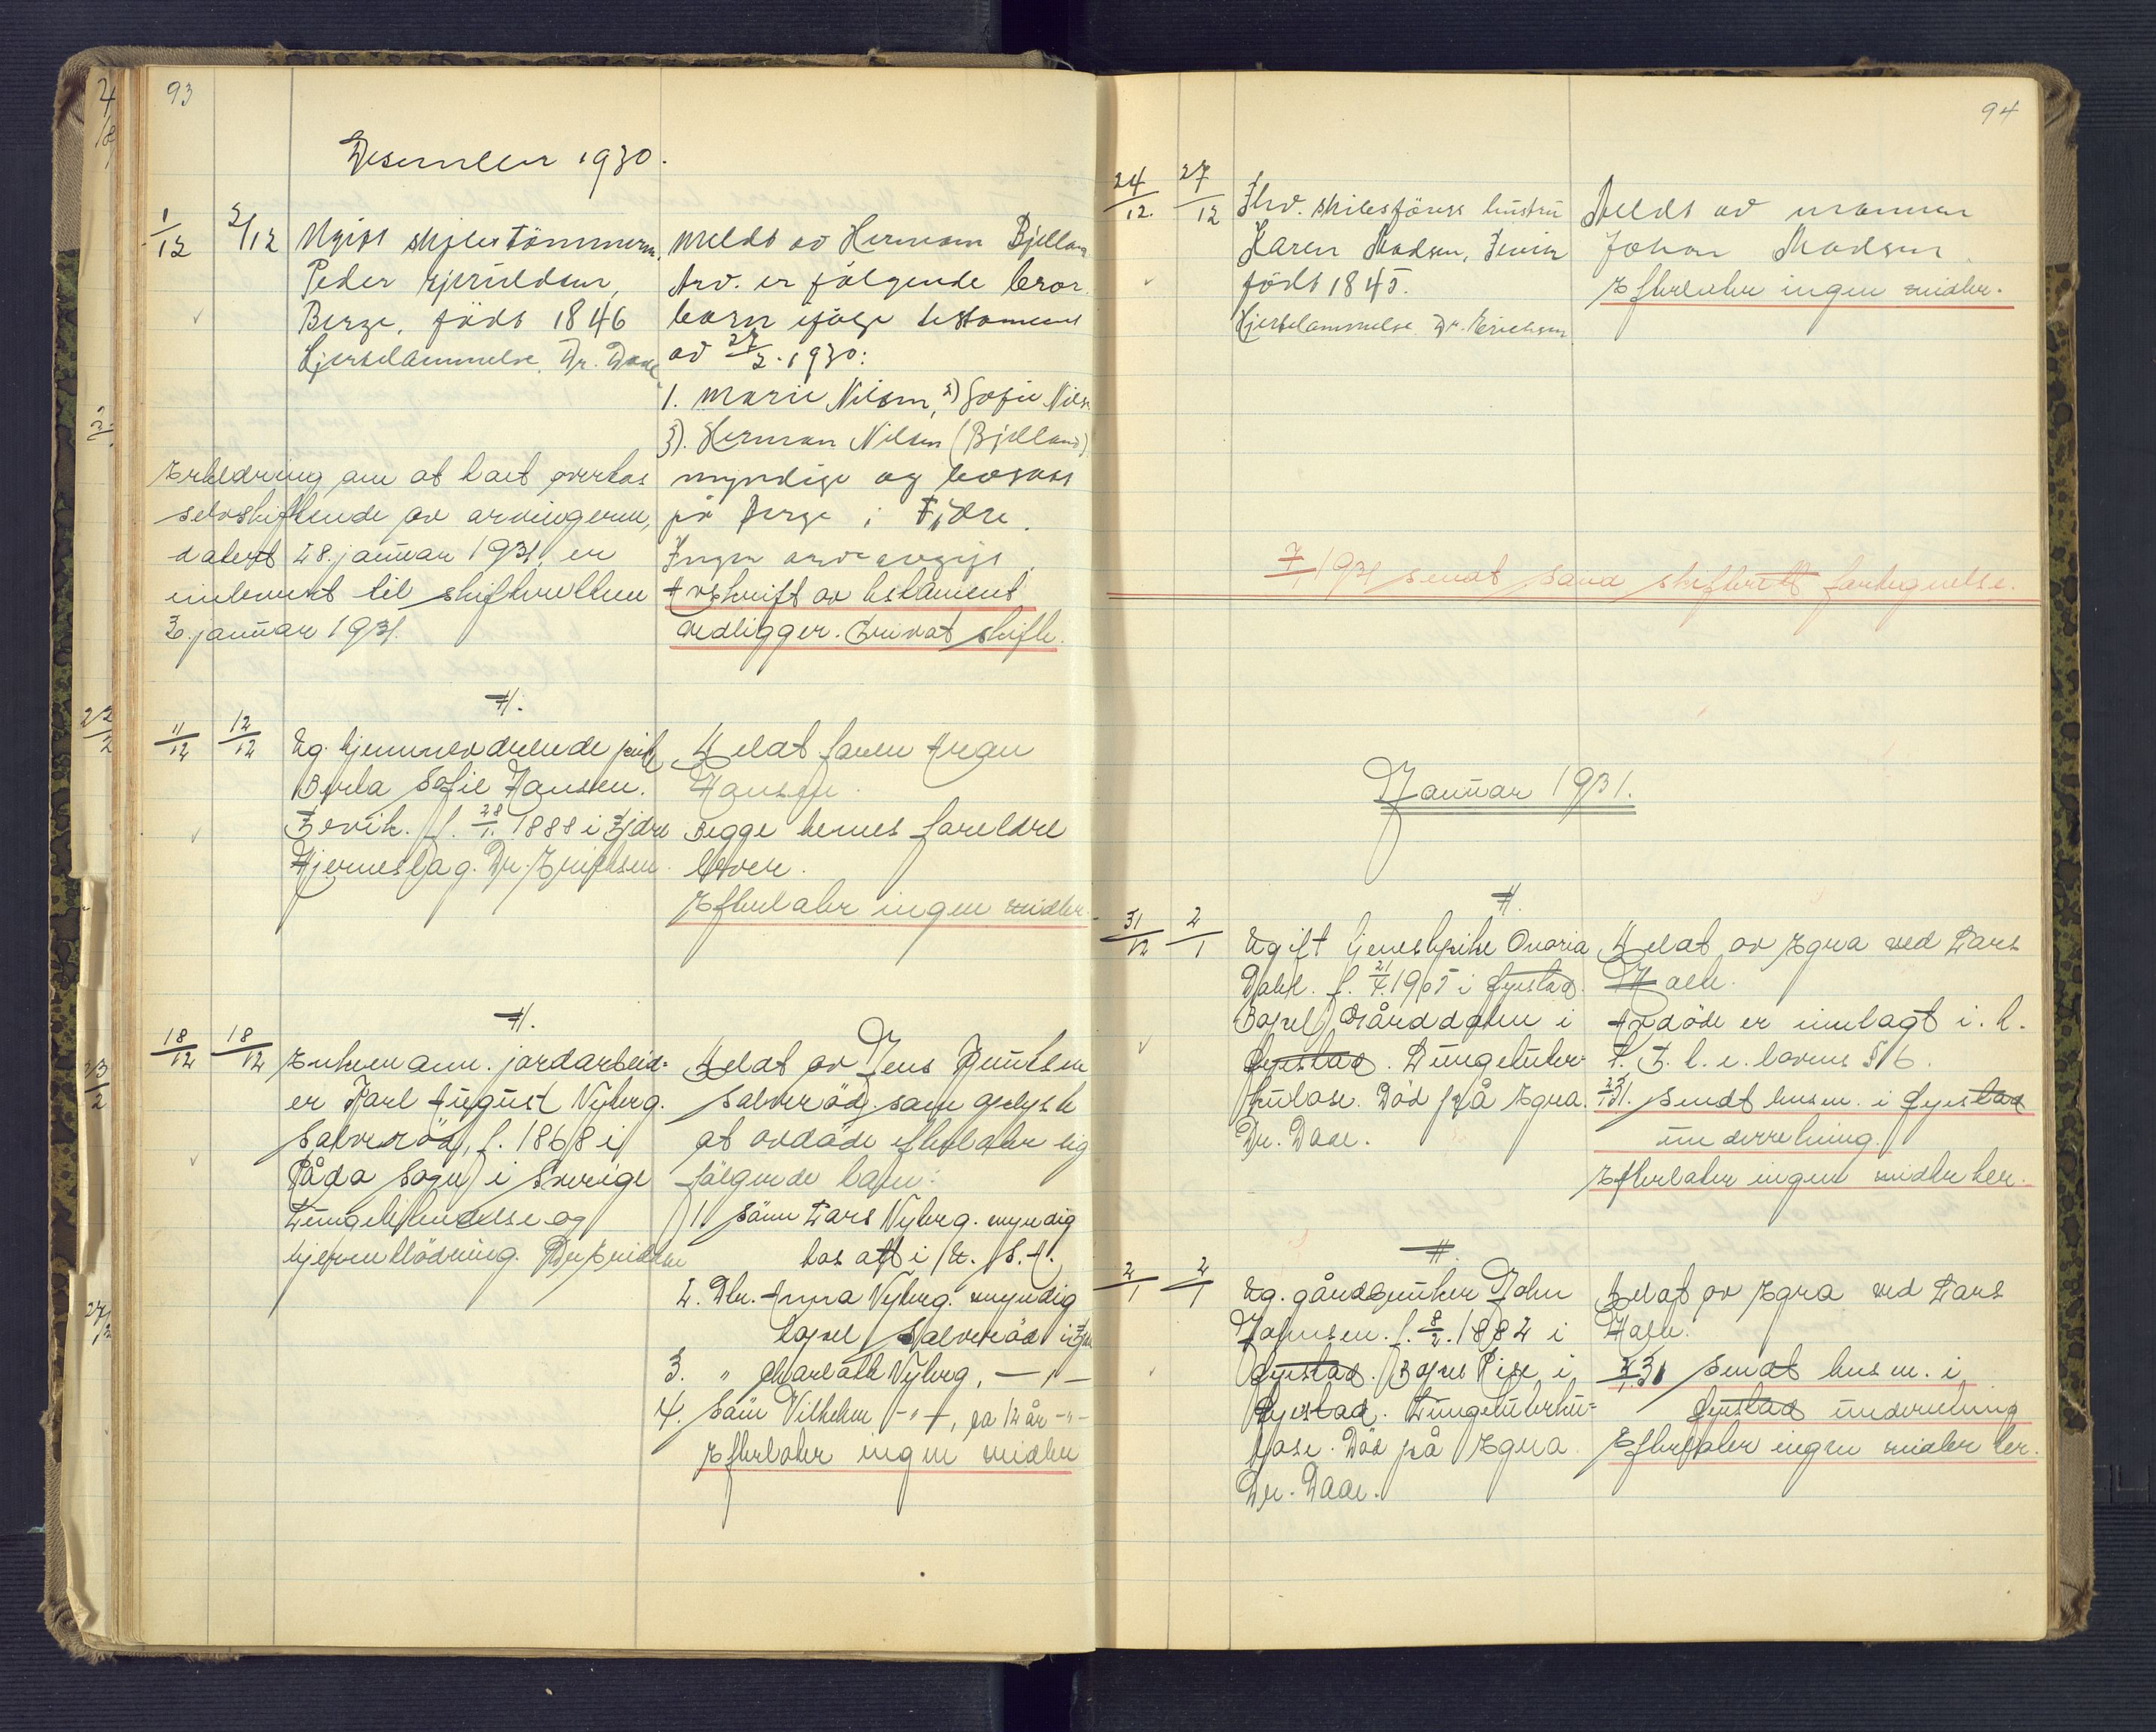 93
Desember 1930.
1/12 2/12 Ugift skibstömmerm.
Peder Gjeruldsen,
Berge, födt 1846
Hjertelammelse. Dr. Daae
Meldt av Herman Bjelland
Arv. er følgende bror-
barn ifölge testament
av 27/2. 1930:
1. Marie Nilsen, 2) Sofie Nils
3). Herman Nilsen (Bjelland)
myndige og bosatt
på Berge i Fjære.
Ingen arveavgift.
Avskrift av testament
vedligger. Privat skifte.
Erklæring om at boet overtas
selvskiftende av arvingerne,
datert 28. januar 1931, er
innlevert til skifteretten
3. januar 1931.
H.
11/12 12/12 Ug. hjemmeværende pike
Berta Sofie Hansen.
Fevik. f. 28/1. 1888 i Fjære
Hjerneslag. Dr. Erichsen.
Meldt faren Aron
Hansen.
Begge hennes foreldre
lever.
Efterlater ingen midler.
H.
18/12 18/12 Enkemann. jordarbeid-
er Karl August Nyberg.
Salveröd, f. 1868 i
Råda Sogn i Sverige
Lungebetendelse og
hjerneblödning. Dr. Erichsen
Meldt av Jens Knutsen
Salveröd som oplyste
at avdöde efterlater sig
følgende barn:
1. Sönn Lars Nyberg. myndig
bosatt i U. S. A.
2. Dtr. Anna Nyberg. myndig
bopel Salveröd i Fjære
3. " Charlotte Nyberg, — " —
4. Sönn Vilhelm -"-, ca 12 år -"-
Efterlater ingen midler
94
24/12. 27/12 Fhv. skibsförers hustru
Karen Madsen, Fevik
födt 1845.
Hjertelammelse. Dr. Erichsen.
Meldt av mannen
Johan Madsen.
Efterlater ingen midler.
7/1 1931 sendt Sand skifterett fortegnelse.
Januar 1931.
H.
31/12 2/1 Ugift tjenestepike Onora
Dahl. f. 21/4. 1905 i Gjerstad.
Bopel Vårddalen i
Gjerstad. Lungetuber-
kulose. Död på Egra.
Dr. Daae.
Meldt av Egra ved Lars
Holte.
Avdöde er innlagt i. h.
t. T. b. c. lovens § 6.
2/1 31. Sendt lensm. i Gjerstad
underretning.
Efterlater ingen midler her.
H.
2/1 2/1 Ug. gårdbruker John
Johnsen. f. 8/2. 1882 i
Gjerstad. Bopel Pise i
Gjerstad. Lungetuberku-
lose. Död på Egra.
Dr. Daae.
Meldt av Egra ved Lars
Holte.
2/1 31 Sendt lensm. i
Gjerstad underretning
Efterlater ingen midler her.